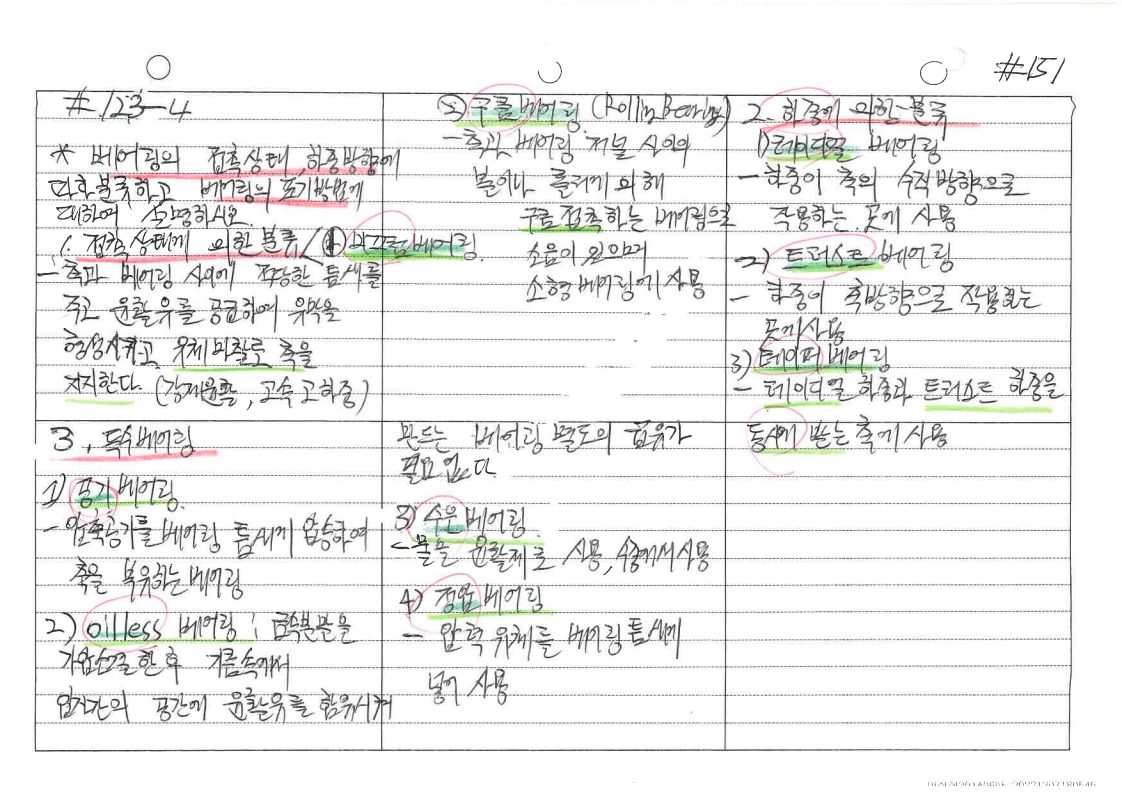 #151
#.123-4
* 베어링의 접촉상태, 하중방향에
따라 분류하고 베어링의 표기방법에
대하여 설명하시오
1. 접촉상태에 의한 분류 / ① 미끄럼베어링
- 축과 베어링 사이에 적당한 틈새를
주고 윤활유를 공급하여 유막을
형성시키고 유체마찰로 축을
지지한다. (강제윤활, 고속 고하중)
② 구름베어링 (Rolling Bearing)
- 축과 베어링 저널 사이의
볼이나 롤러에 의해
구름접촉하는 베어링으로
소음이 있으며
소형 베어링에 사용
2. 하중에 의한 분류
1) 레이디얼 베어링
- 하중이 축의 수직방향으로
작용하는 곳에 사용
2) 트러스트 베어링
- 하중이 축방향으로 작용하는
곳에 사용
3) 테이퍼 베어링
- 레이디얼 하중과 트러스트 하중을
동시에 받는 축에 사용
3. 특수베어링
1) 공기베어링
- 압축공기를 베어링 틈새에 압송하여
축을 부유하는 베어링
2) oilless 베어링 : 금속분말을
가압소결한 후 기름속에서
입자간의 공간에 윤활유를 함유시켜
만드는 베어링 별도의 급유가
필요없다.
3) 수윤베어링
- 물을 윤활제로 사용, 수중에서 사용
4) 정압베어링
- 압력 유체를 베어링 틈새에
넣어 사용